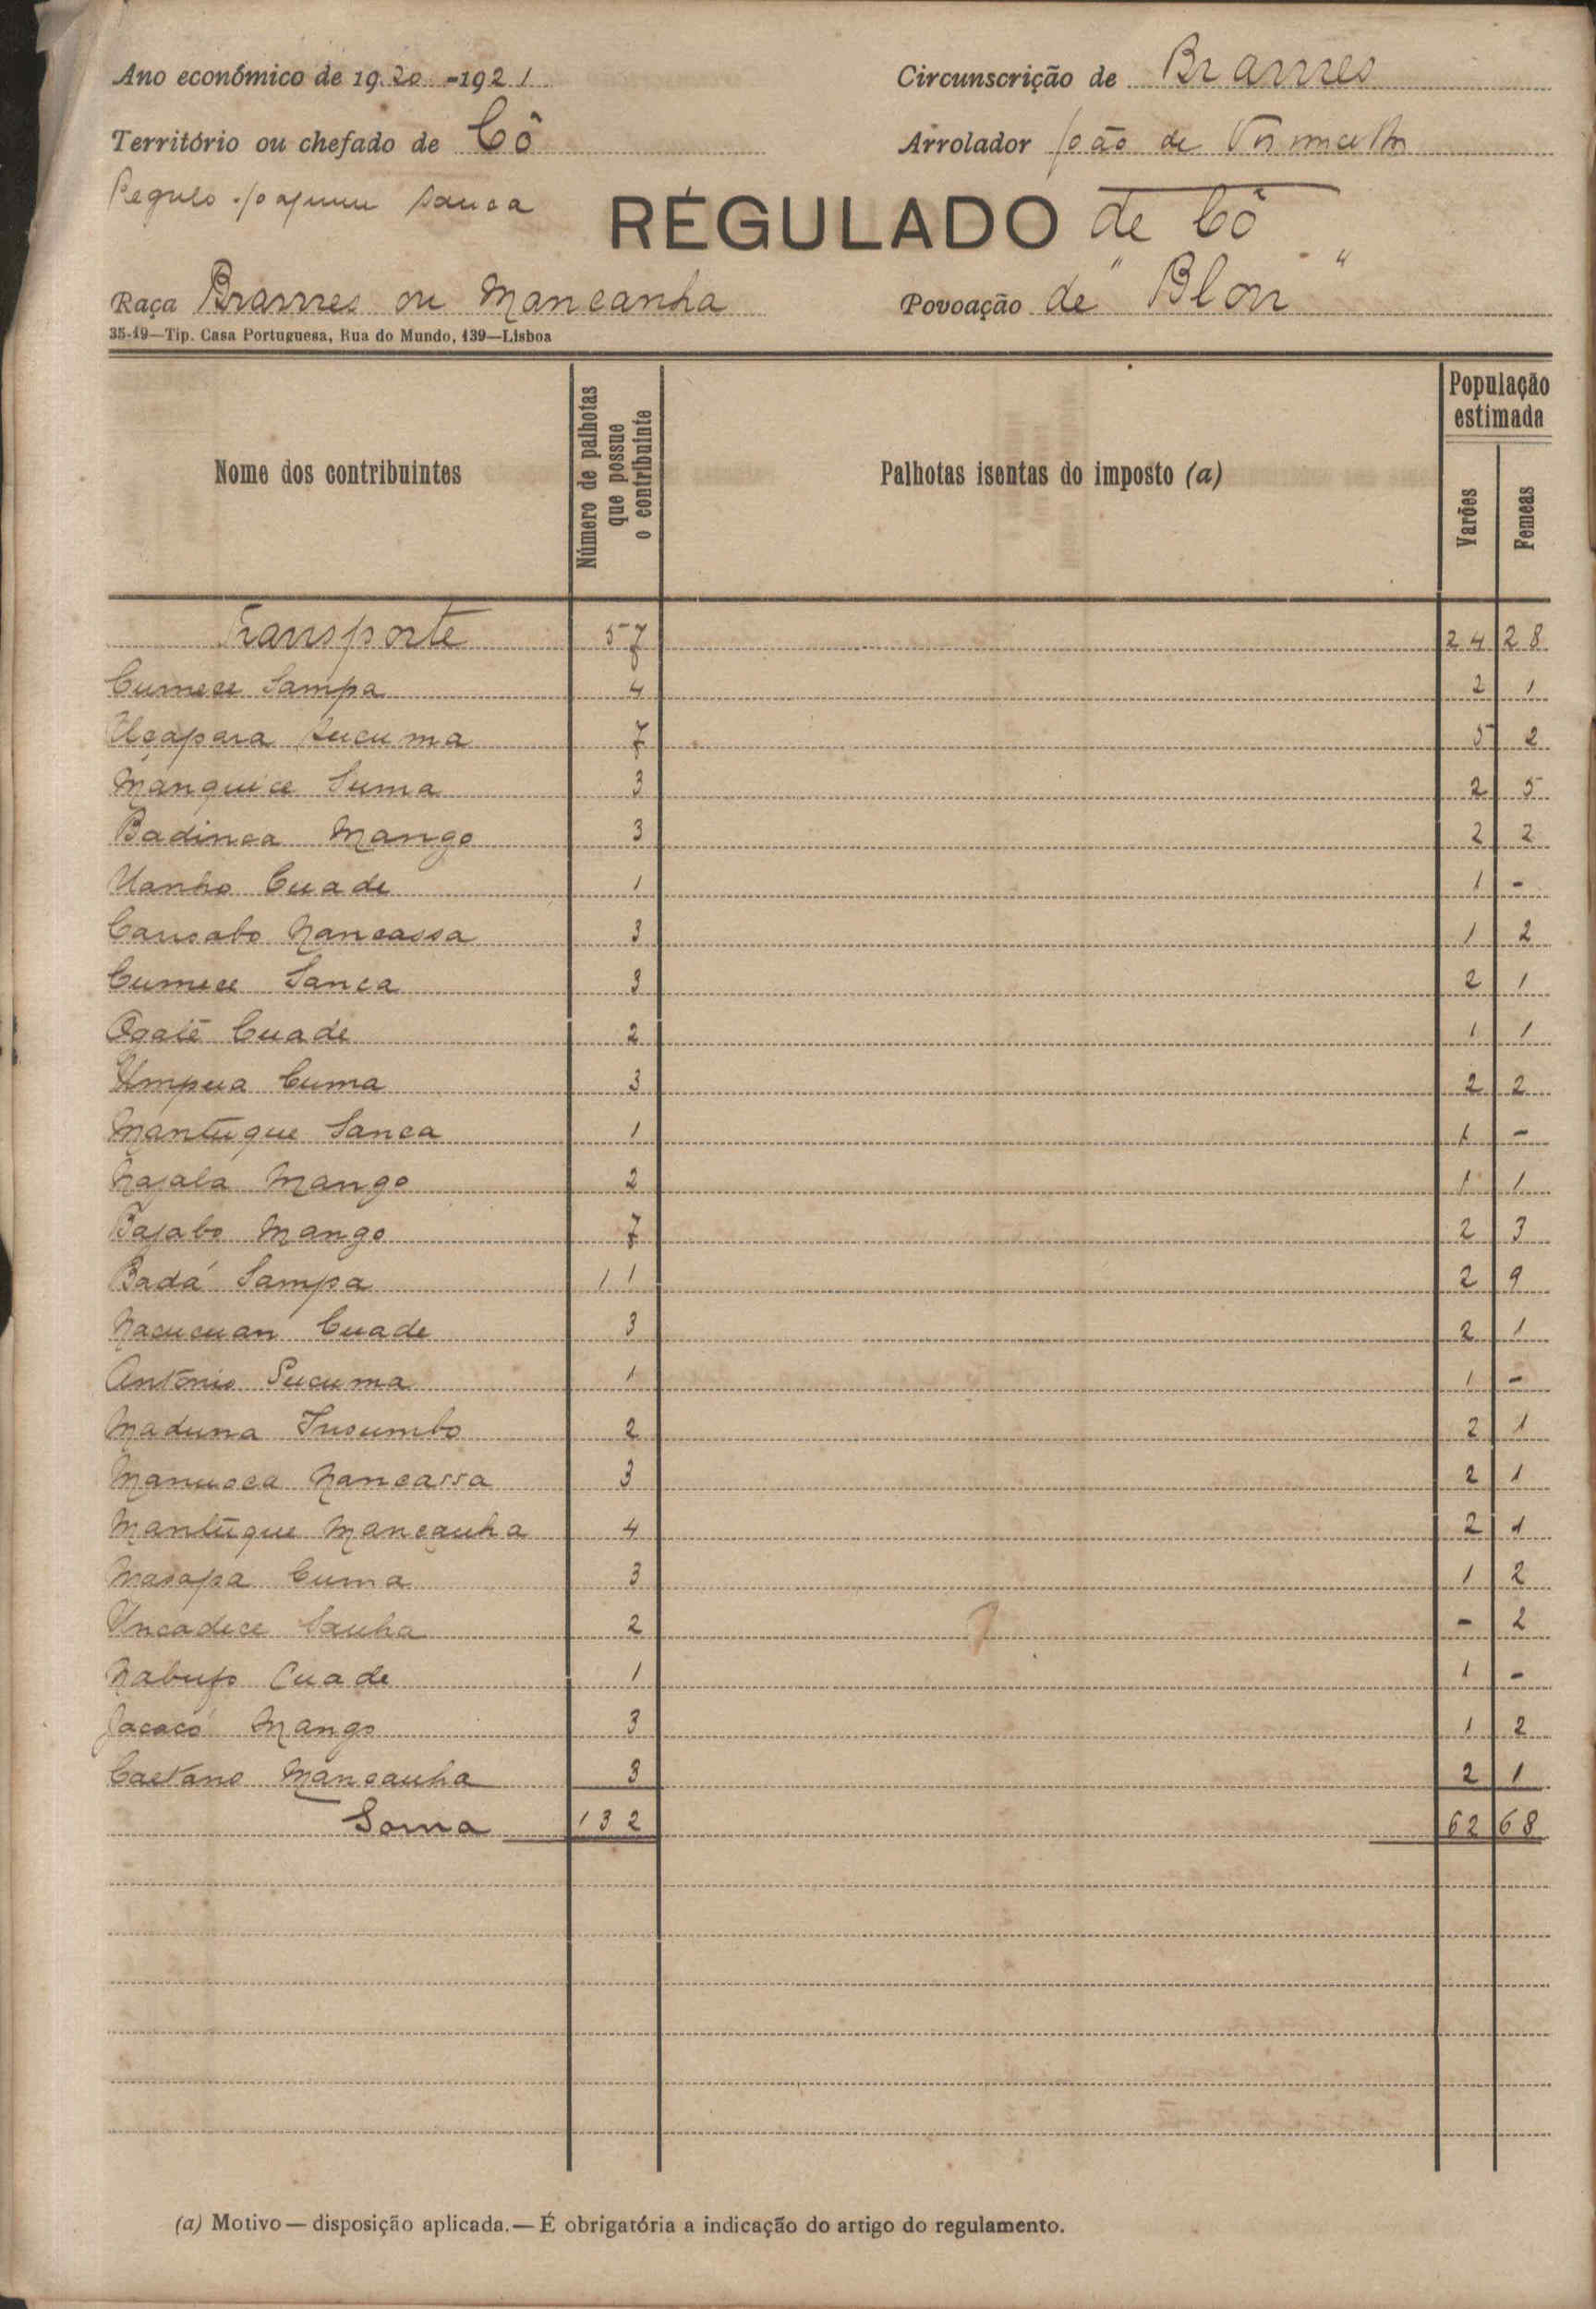 Ano económico de 1920-1921
Circunscrição de Brames
Território ou chefado de Cô
Arrolador João de
Regulo Joaquim Sanca
REGULADO de Cô
Raça Brames ou Mancanha
Povoação de "Blon"
35-19—Tip. Casa Portuguesa, Rua do Mundo, 139—Lisboa
Nome dos contribuintes
Número de palhotas que possue o contribuinte
Palhotas isentas do imposto (a)
População estimada
Varões
Femeas
Transporte 57 24 28
Cumece Sampa 4 2 1
Ucapara Sucuma 7 5 2
Manquice Suma 3 2 5
Badinca Mango 3 2 2
Uanho Cuade 1 1 -
Cansabo Nancassa 3 1 2
Cumece Sanca 3 2 1
Cuade 2 1 1
Umpua Cuma 3 2 2
Mantuque Sanca 1 1 -
Najala Mango 2 1 1
Bajabo Mango 7 2 3
Badá Sampa 11 2 9
Nacucuan Cuade 3 2 1
António Sucuma 1 1 -
Maduna Insumbo 2 2 1
Manusca Nancassa 3 2 1
Mantuque Mancanha 4 2 1
Masapa Cuma 3 1 2
Uncadece Sanha 2 - 2
Nabufo Cuade 1 1 -
Jacacó Mango 3 1 2
Caetano Mancanha 3 2 1
Soma 132 62 68
(a) Motivo — disposição aplicada. — É obrigatória a indicação do artigo do regulamento.